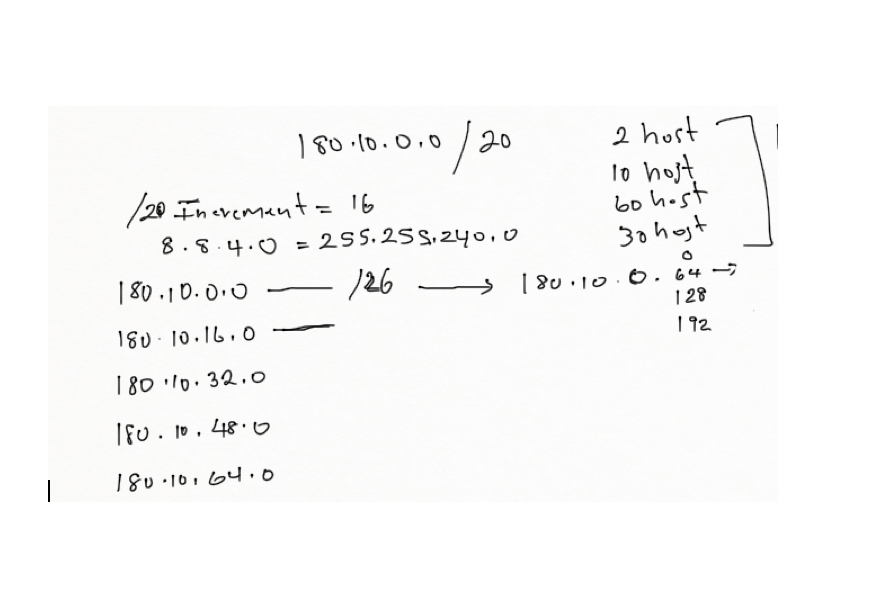 180.10.0.0/20
2 host
10 host
60 host
30 host
/20 Increment = 16
8.8.4.0 = 255.255.240.0
180.10.0.0 — /26 → 180.10.0.64 →
0
128
192
180.10.16.0 —
180.10.32.0
180.10.48.0
180.10.64.0